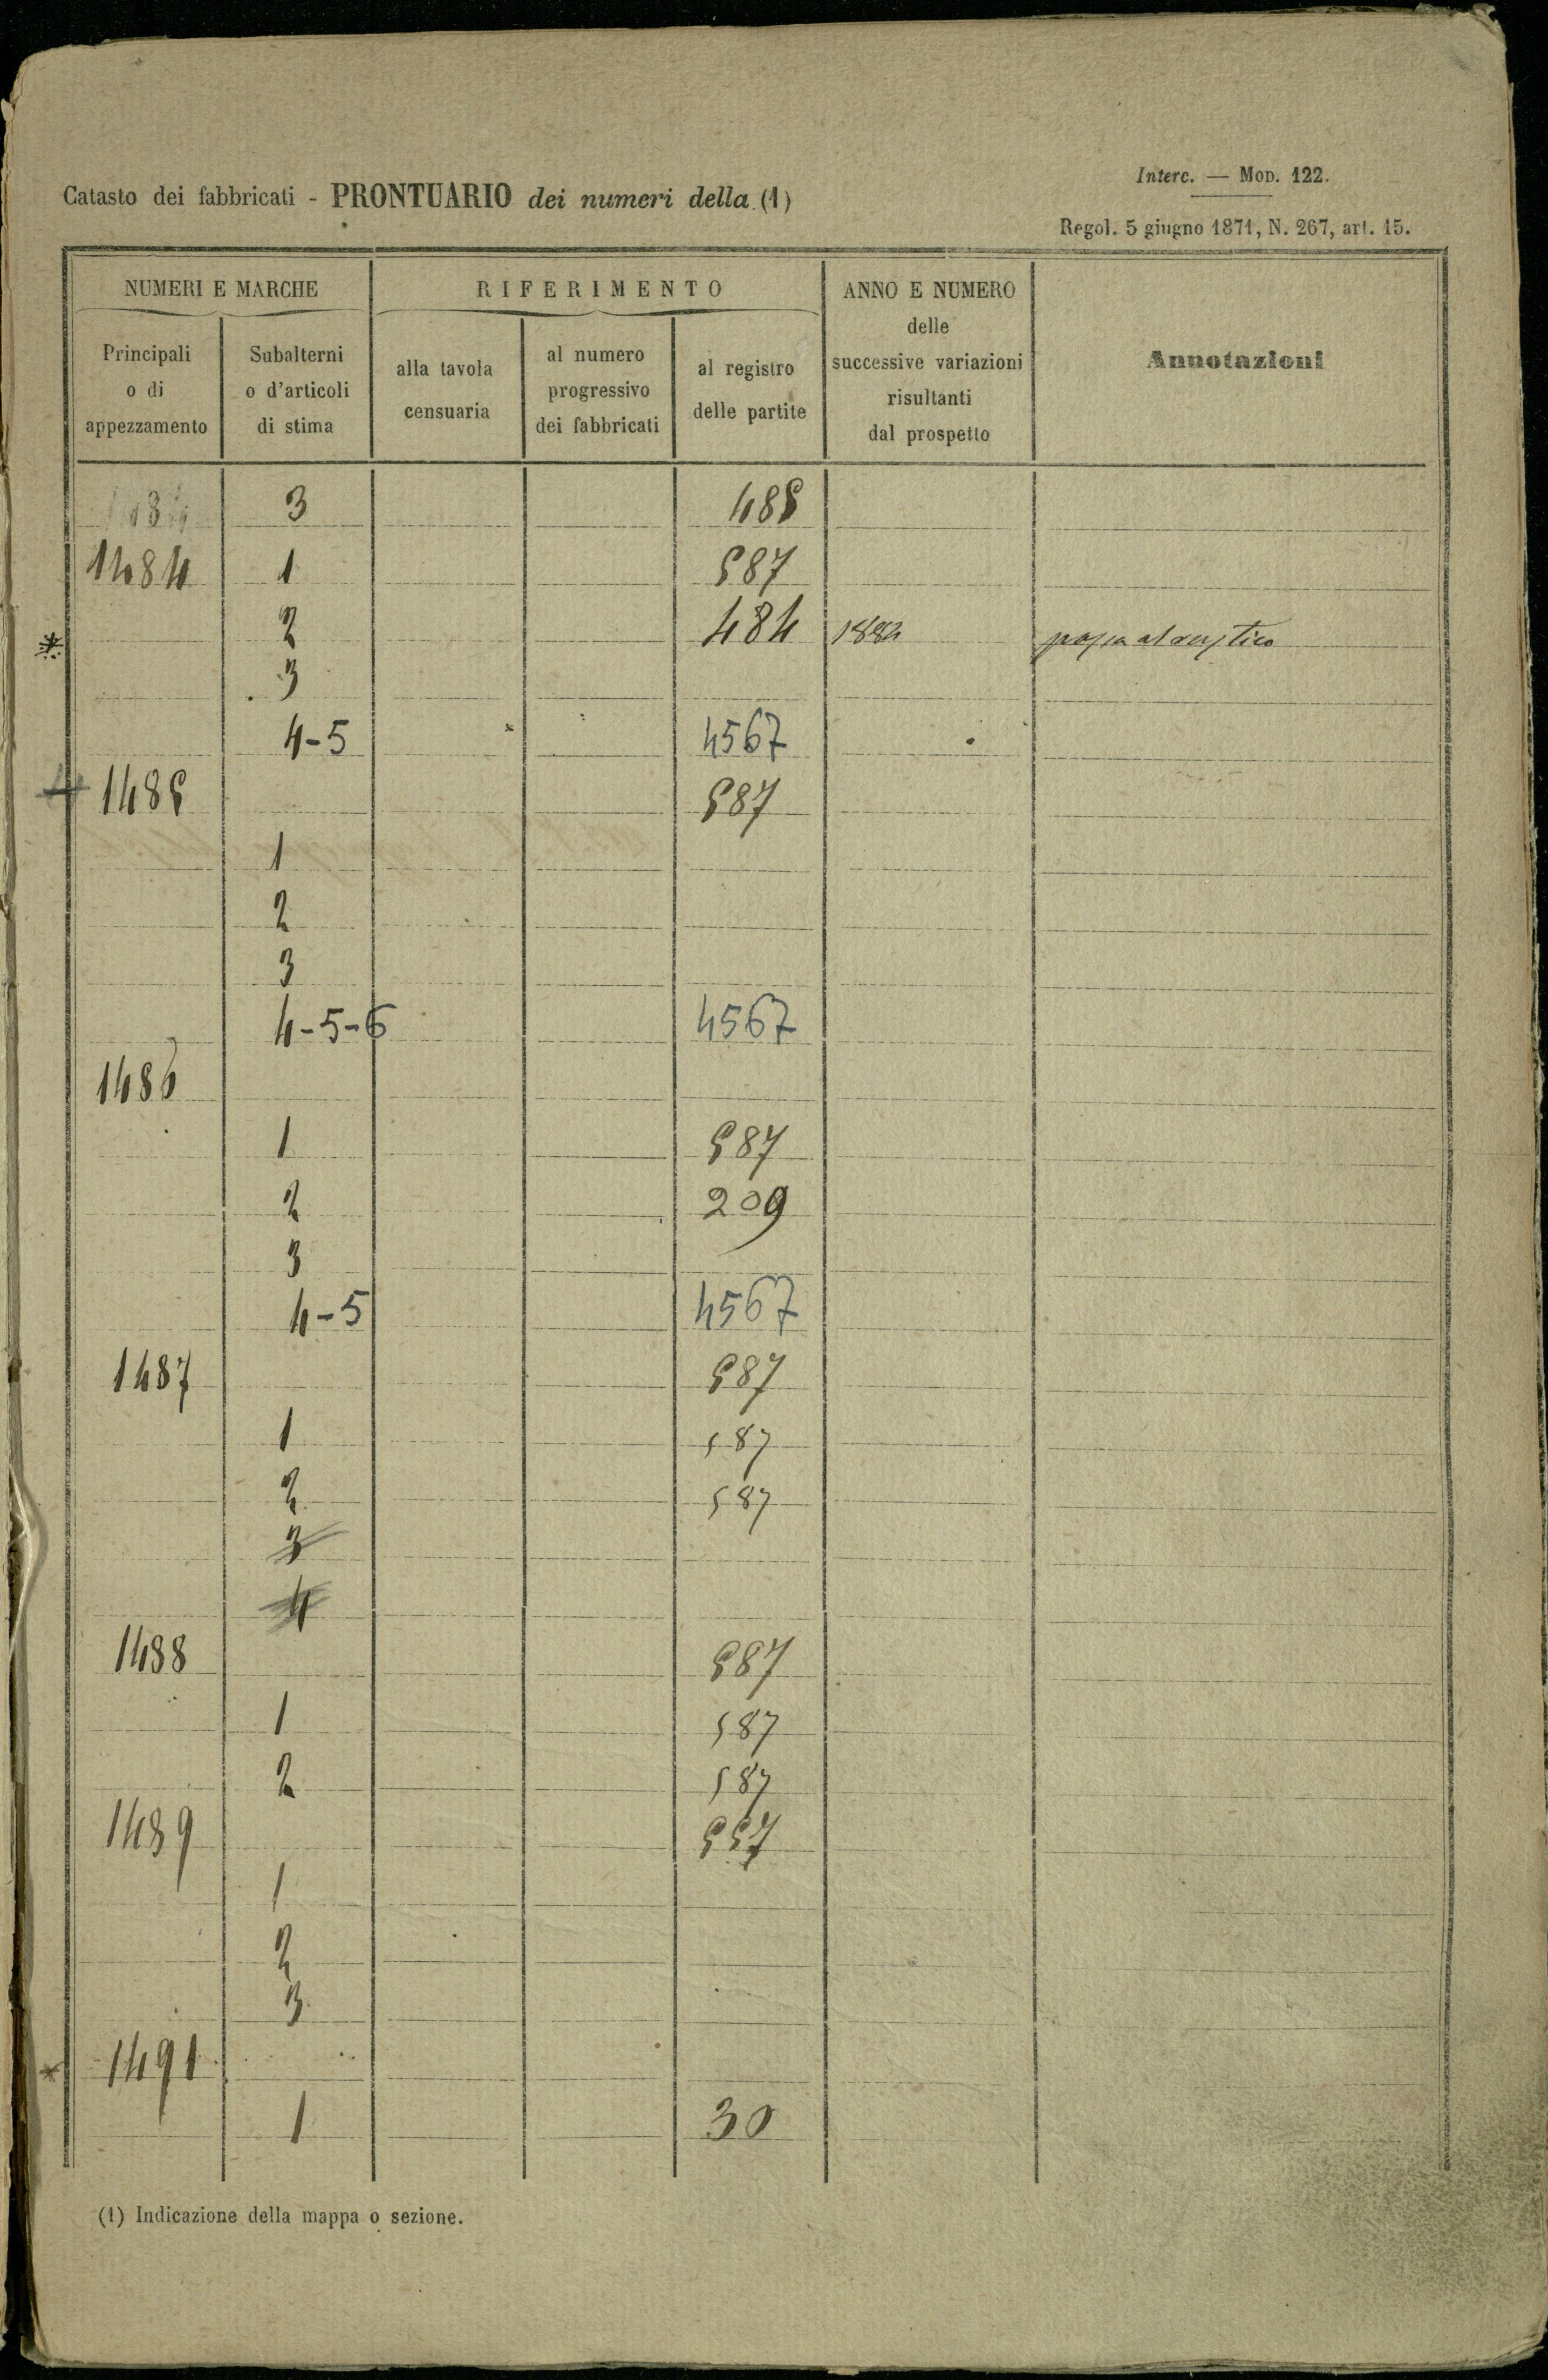 Interc. — MOD. 122.
Catasto dei fabbricati - PRONTUARIO dei numeri della (1)
Regol. 5 giugno 1871, N. 267, art. 15.
NUMERI E MARCHE
RIFERIMENTO
ANNO E NUMERO
delle
successive variazioni
risultanti
dal prospetto
Annotazioni
Principali
o di
appezzamento
Subalterni
o d'articoli
di stima
alla tavola
censuaria
al numero
progressivo
dei fabbricati
al registro
delle partite
3 485
1484 1 587
2 484 1884 passa al rustico
3
4-5 4567
1485 587
1
2
3
4-5-6 4567
1486
1 587
2 209
3
4-5 4567
1487 587
1 587
2 587
3
4
1488 587
1 587
2 587
1489 557
1
2
3
1491
1 30
(1) Indicazione della mappa o sezione.